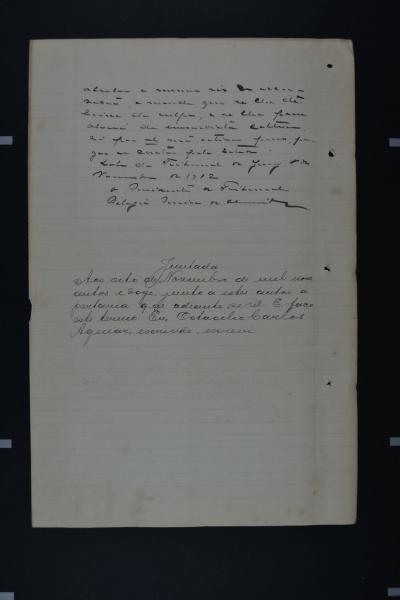 absolvo o mesmo réo da accu-
sação, e mando que se lhe dê
baixa da culpa, e se lhe passe
alvará de
si por al não estiver preso, pa-
gas as custas pelo
Sala do Tribunal do Jury 8 de
Novembro de 1912
O Presidente do Tribunal
Pelagio Pereira de
Juntada
Aos oito de Novembro de mil nove
centos e doze, junto a estes autos a
portaria que adiante se vê. E faço
este termo. Eu, Octacilio Carlos
Aguiar, escrivão, escrevi